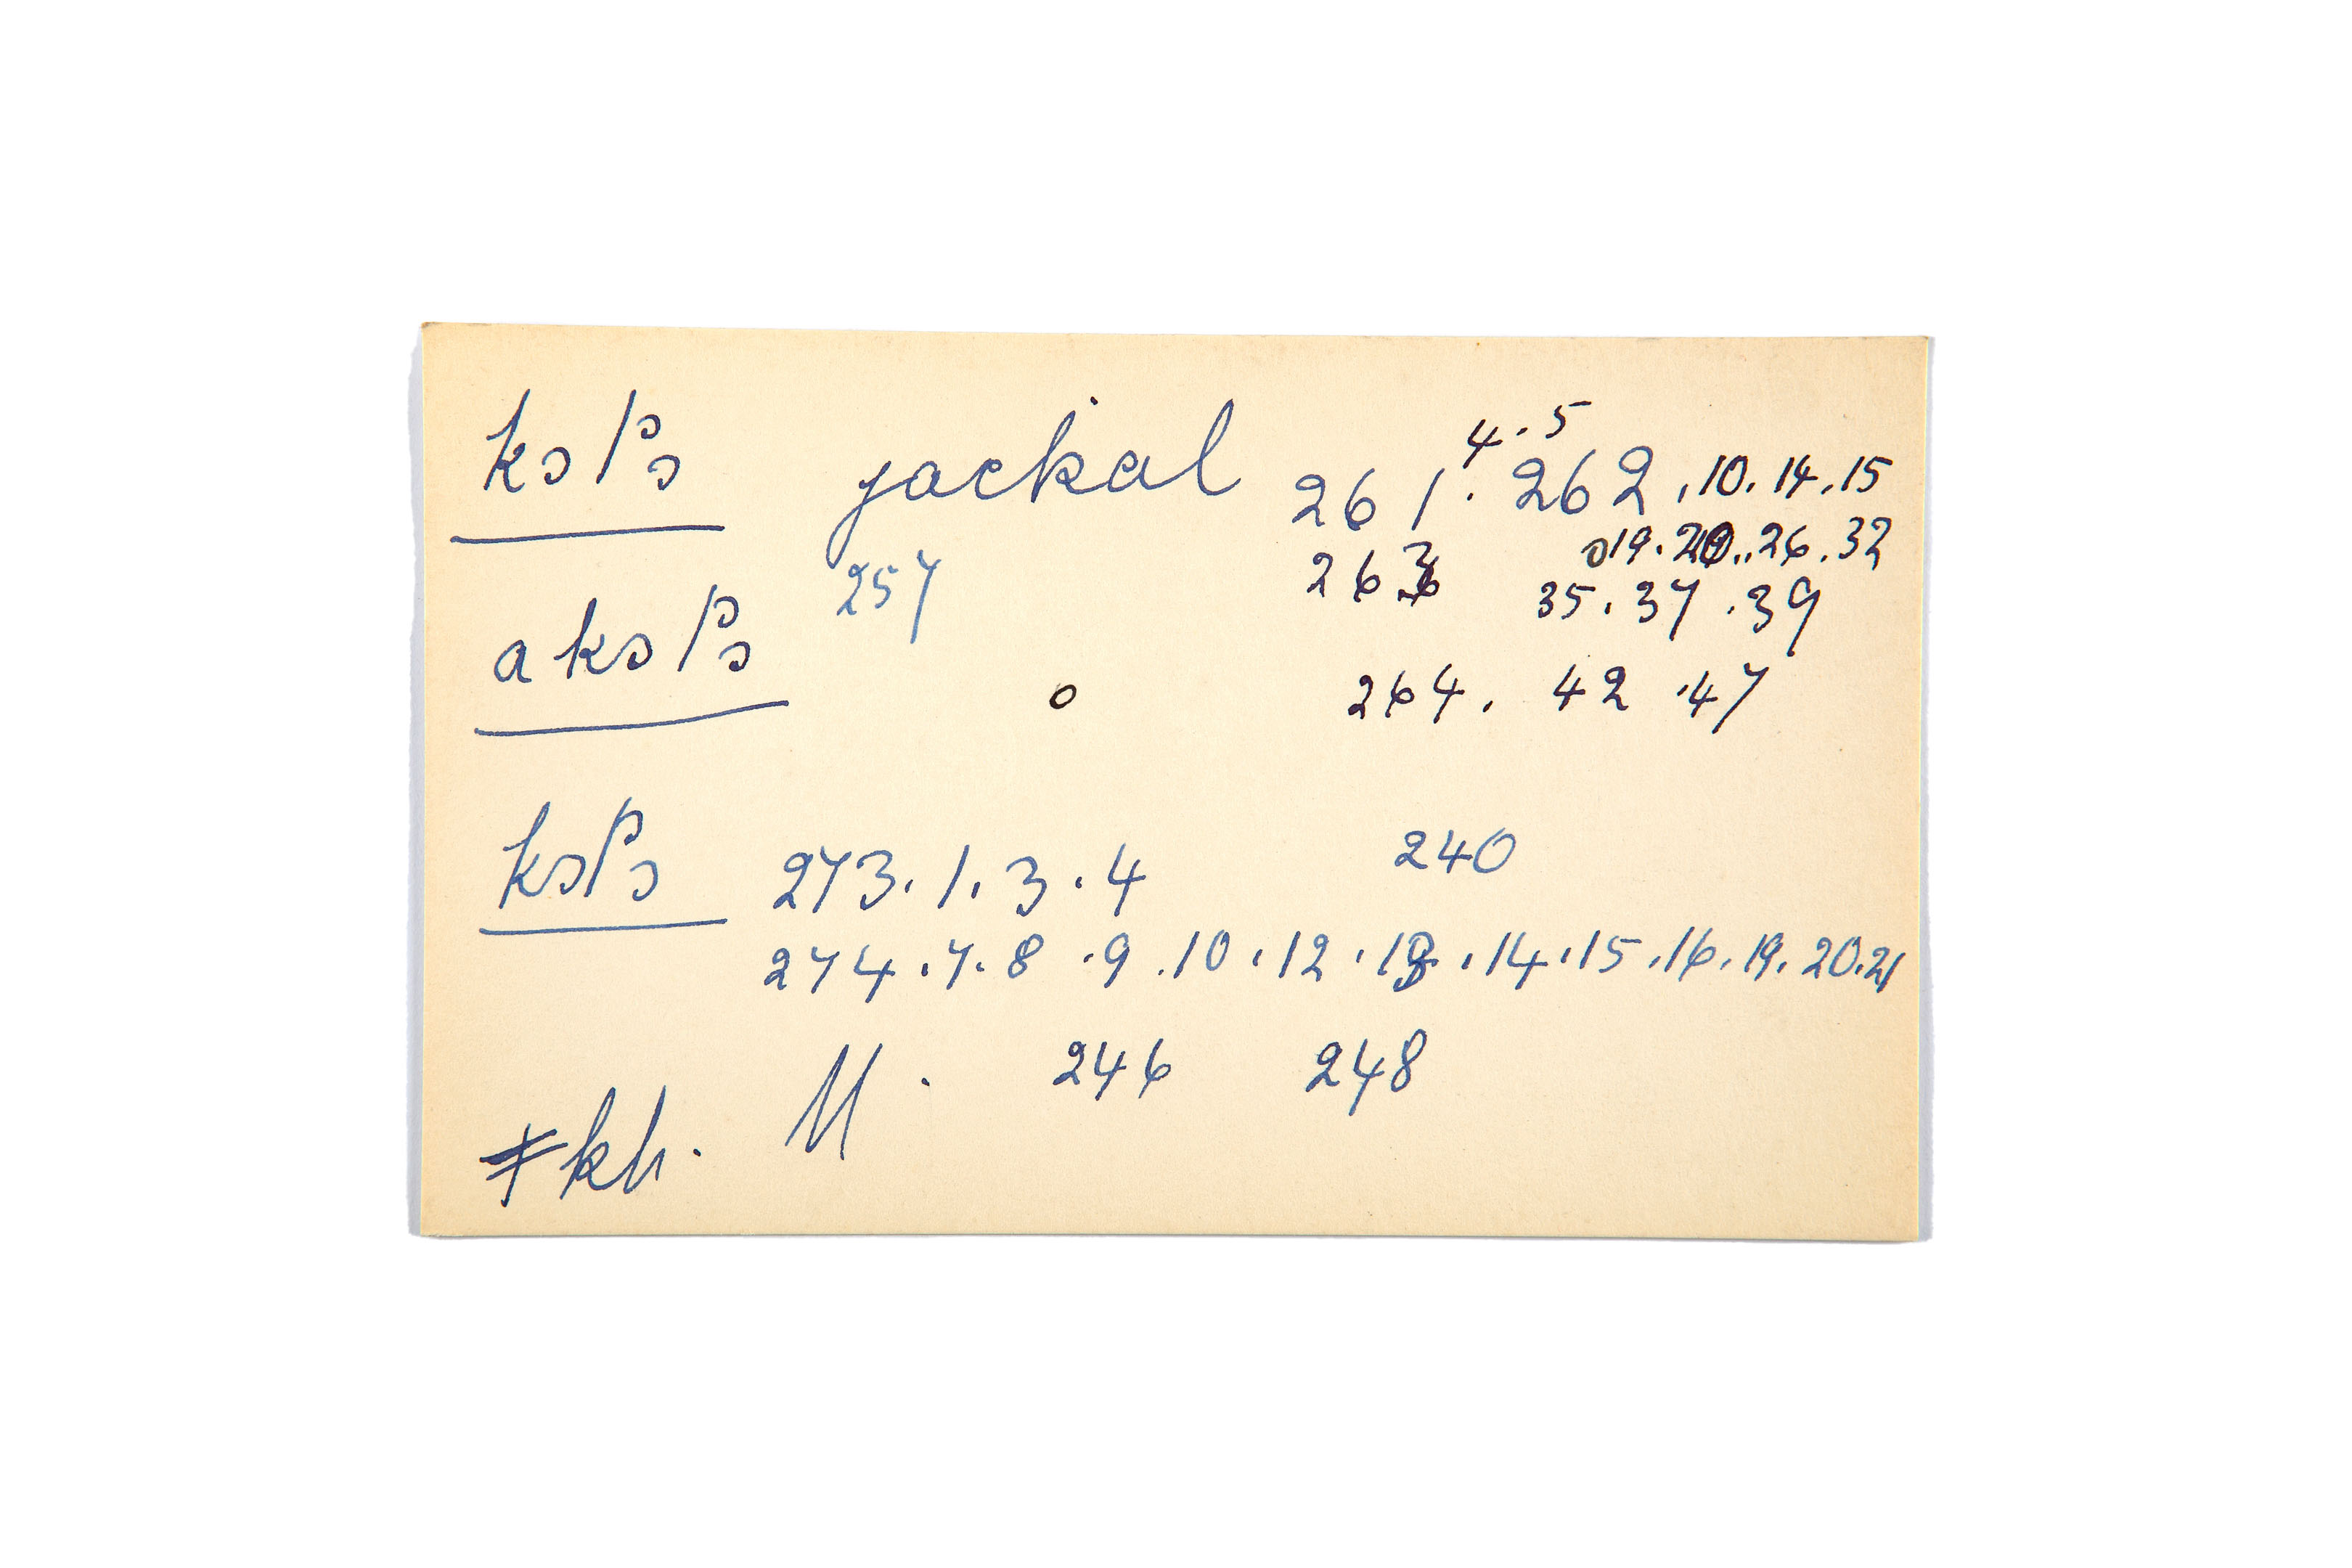 kɔ/ˀɔ jackal 261. 4.5 262 .10.14.15
257 263 19.20..26.32
akɔ/ˀɔ 35.37.39
264. 42.47
kɔ/ˀɔ 273.1.3.4 240
274.7.8.9.10.12.13.14.15.16.19.20.21
ǂkh. M. 246 248